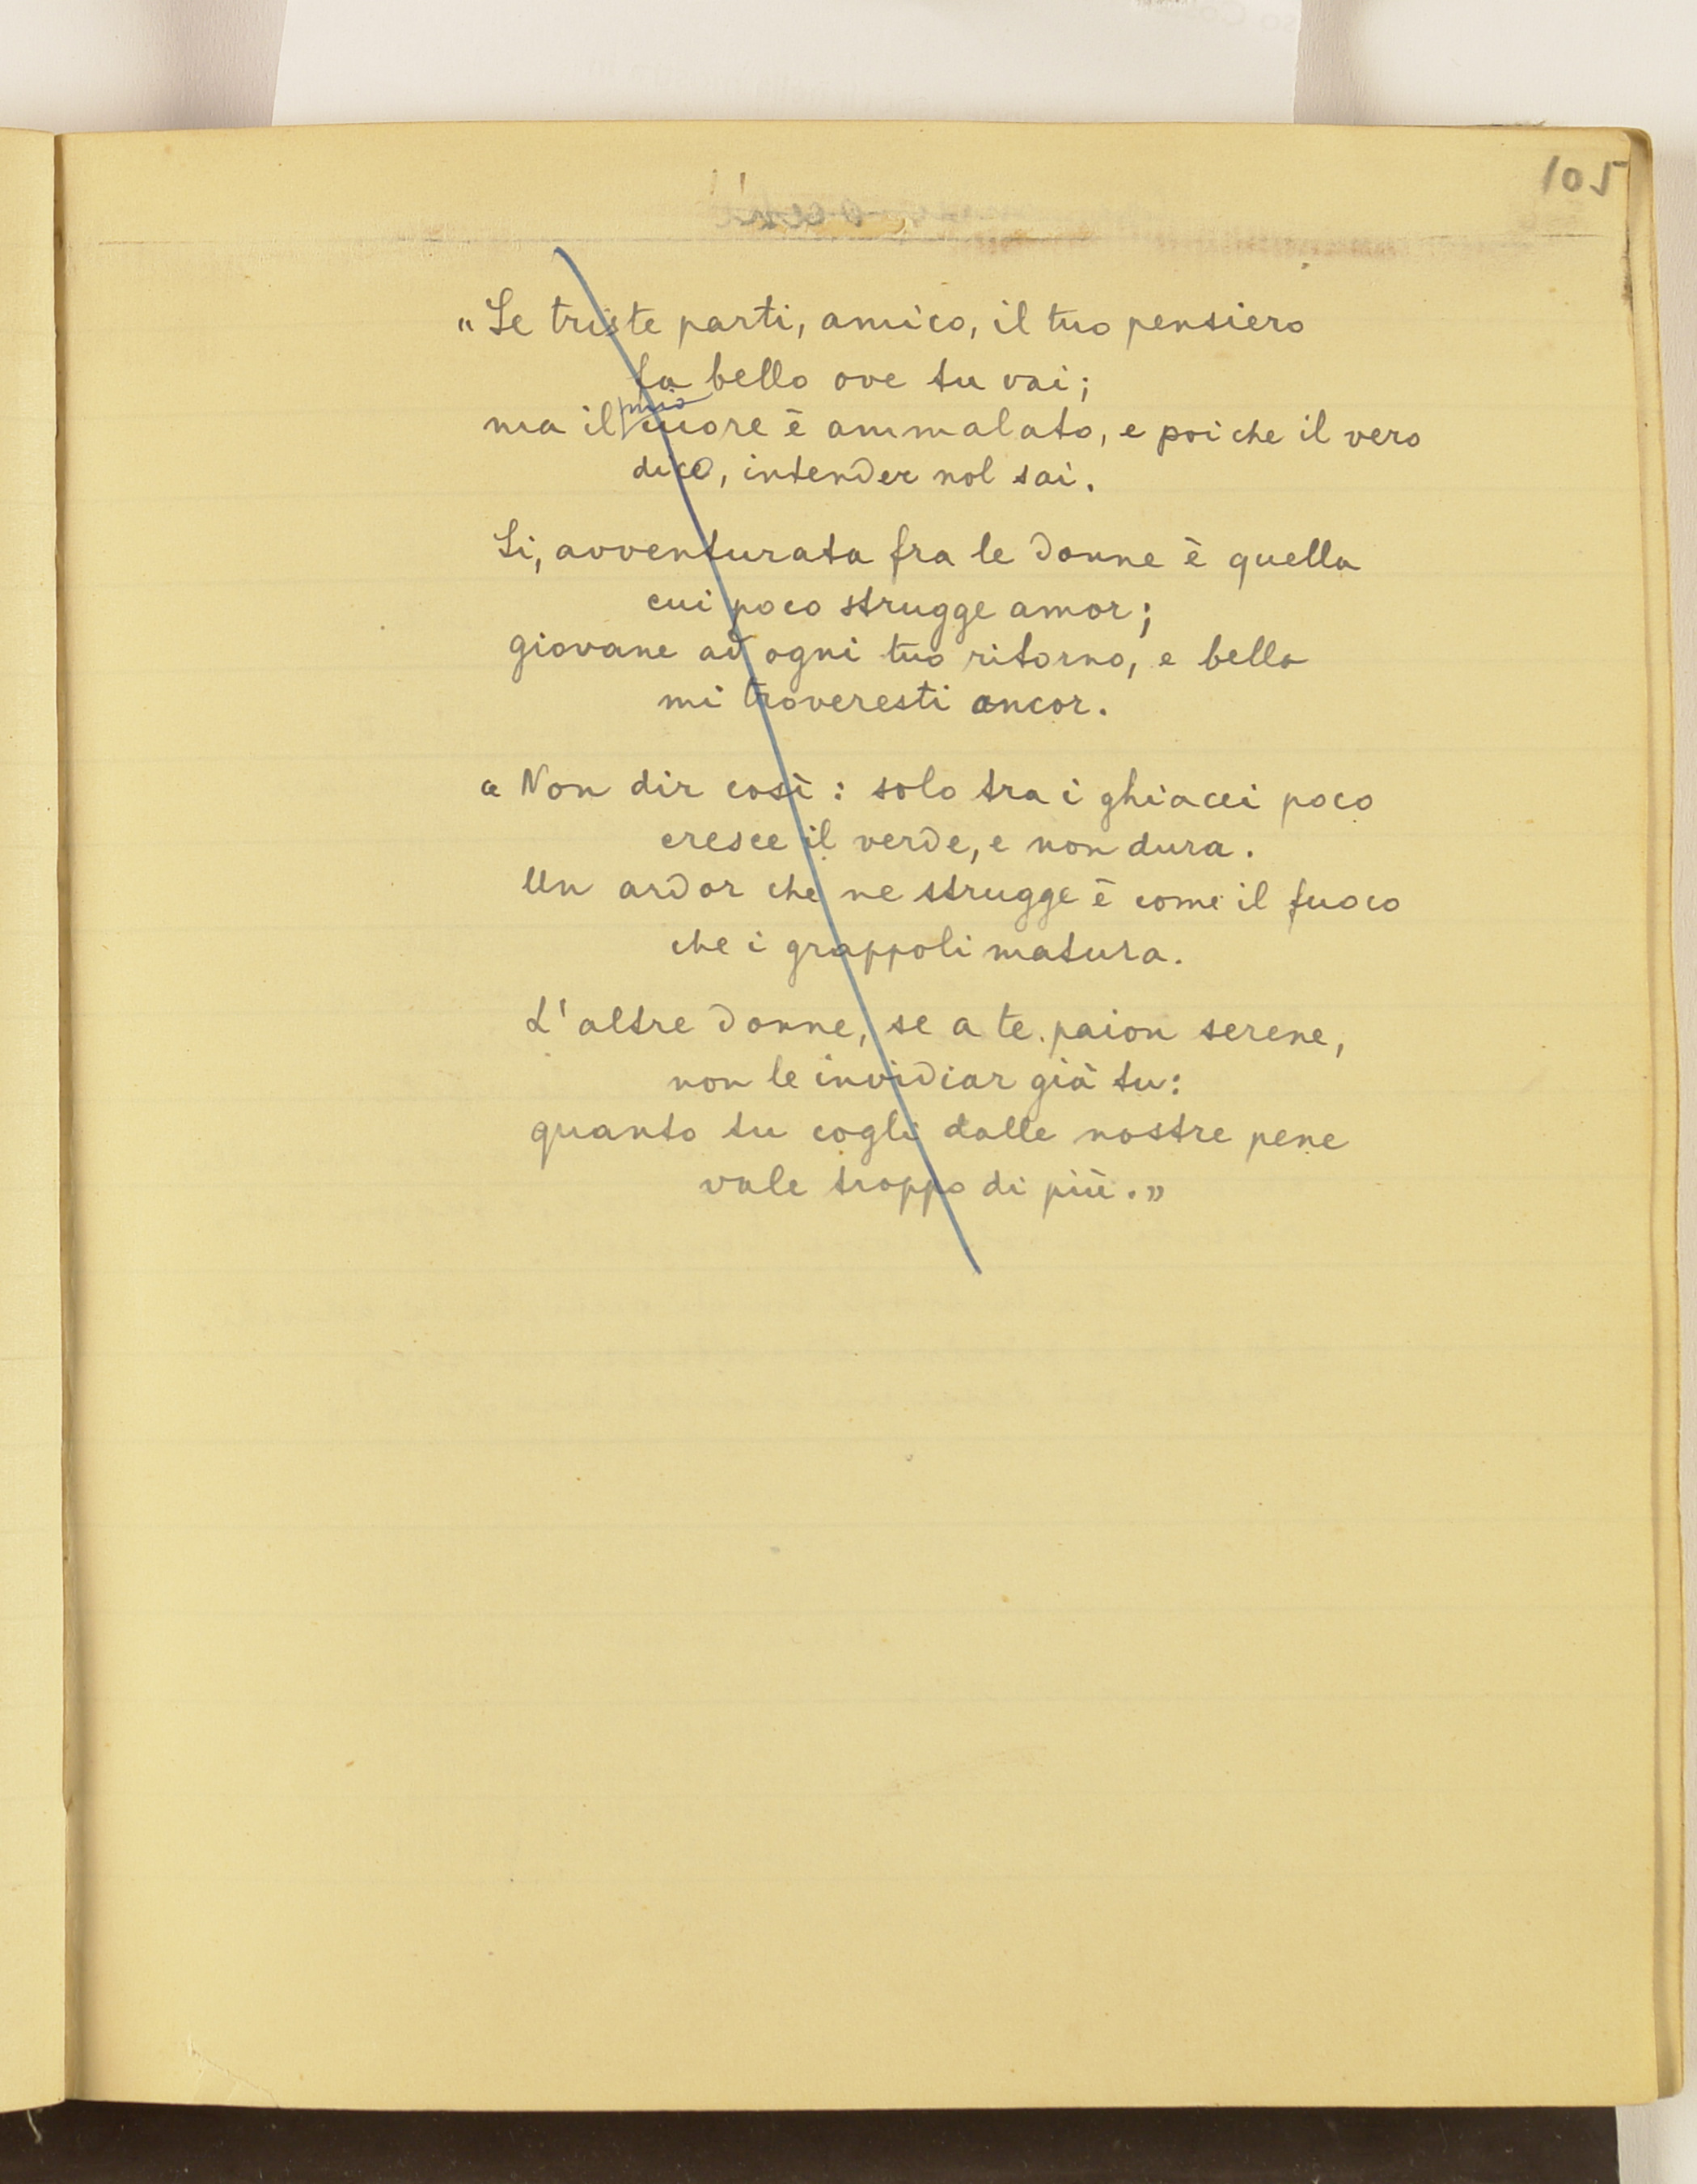 105
"Se triste parti, amico, il tuo pensiero
fa bello ove tu vai;
ma il mio cuore è ammalato, e poi che il vero
dico, intender nol sai.
Si, avventurata fra le donne è quella
cui poco strugge amor;
giovane ad ogni tuo ritorno, e bella
mi troveresti ancor.
« Non dir così: solo tra i ghiacci poco
cresce il verde, e non dura.
Un ardor che ne strugge è come il fuoco
che i grappoli matura.
L'altre donne, se a te paion serene,
non le invidiar già tu:
quanto tu cogli dalle nostre pene
vale troppo di più.»